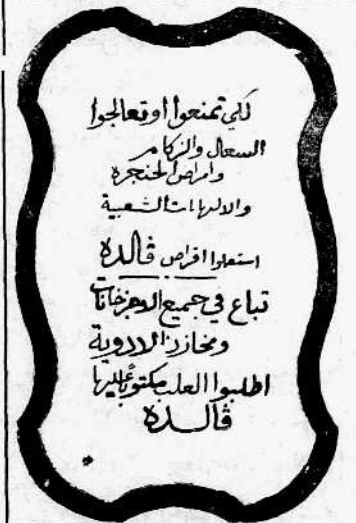 لكي تمنعوا او تعالجوا
السعال والزكام
وامراض الحنجره
والالتهابات الشعبية
استعملوا اقراص ڤالدة
تباع في جميع الاجزخانات
ومخازن الادوية
اطلبوا العلب مكتوب عليها
ڤالدة